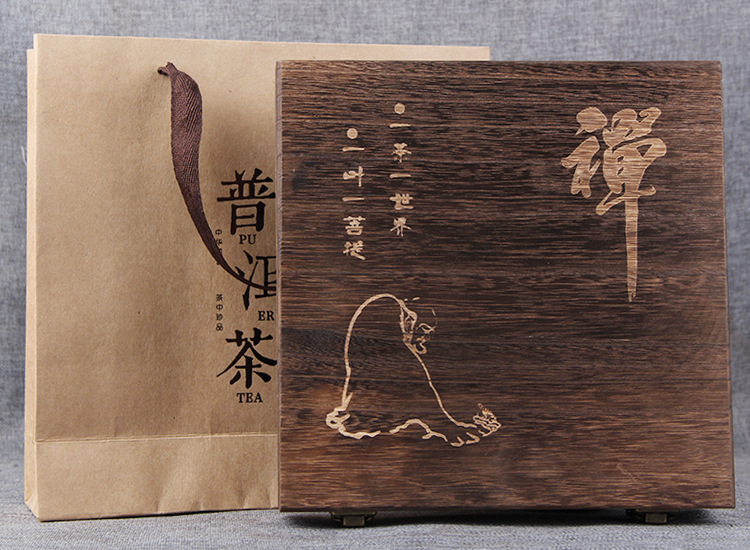 普
PU
洱
ER
茶
TEA
茶中珍品
禪
一茶一世界
一叶一菩提